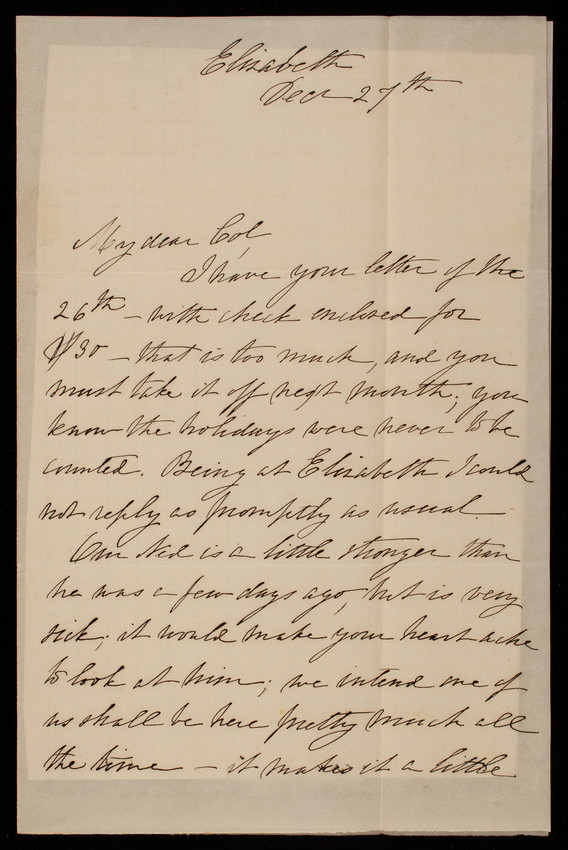 Elizabeth
Decr 27th
My dear Col,
I have your letter of the
26th - with check enclosed for
$30 - that is too much, and you
must take it off next month; you
know the holidays were never to be
counted. Being at Elizabeth I could
not reply as promptly as usual -
Our Ned is a little stronger than
he was a few days ago, but is very
sick; it would make your heart ache
to look at him; we intend one of
us shall be here pretty much all
the time - it makes it a little